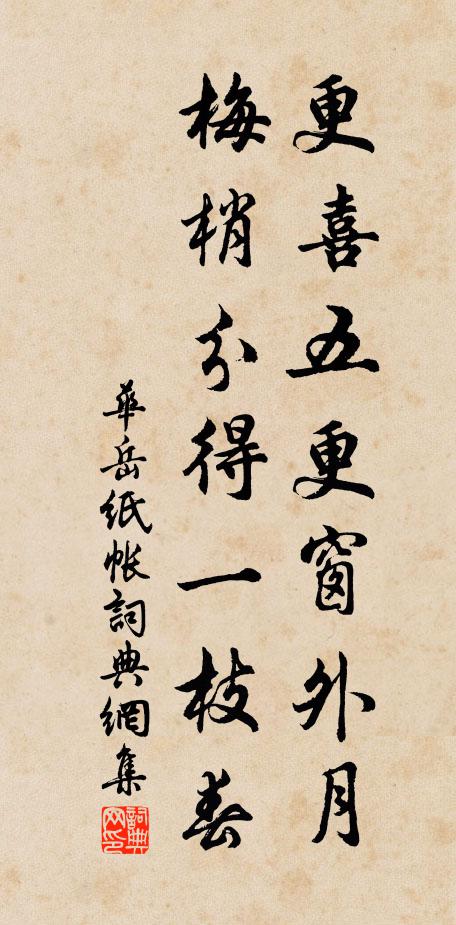 更喜五更窗外月
梅梢分得一枝春
華岳紙帳詞典網集
詞典
网印